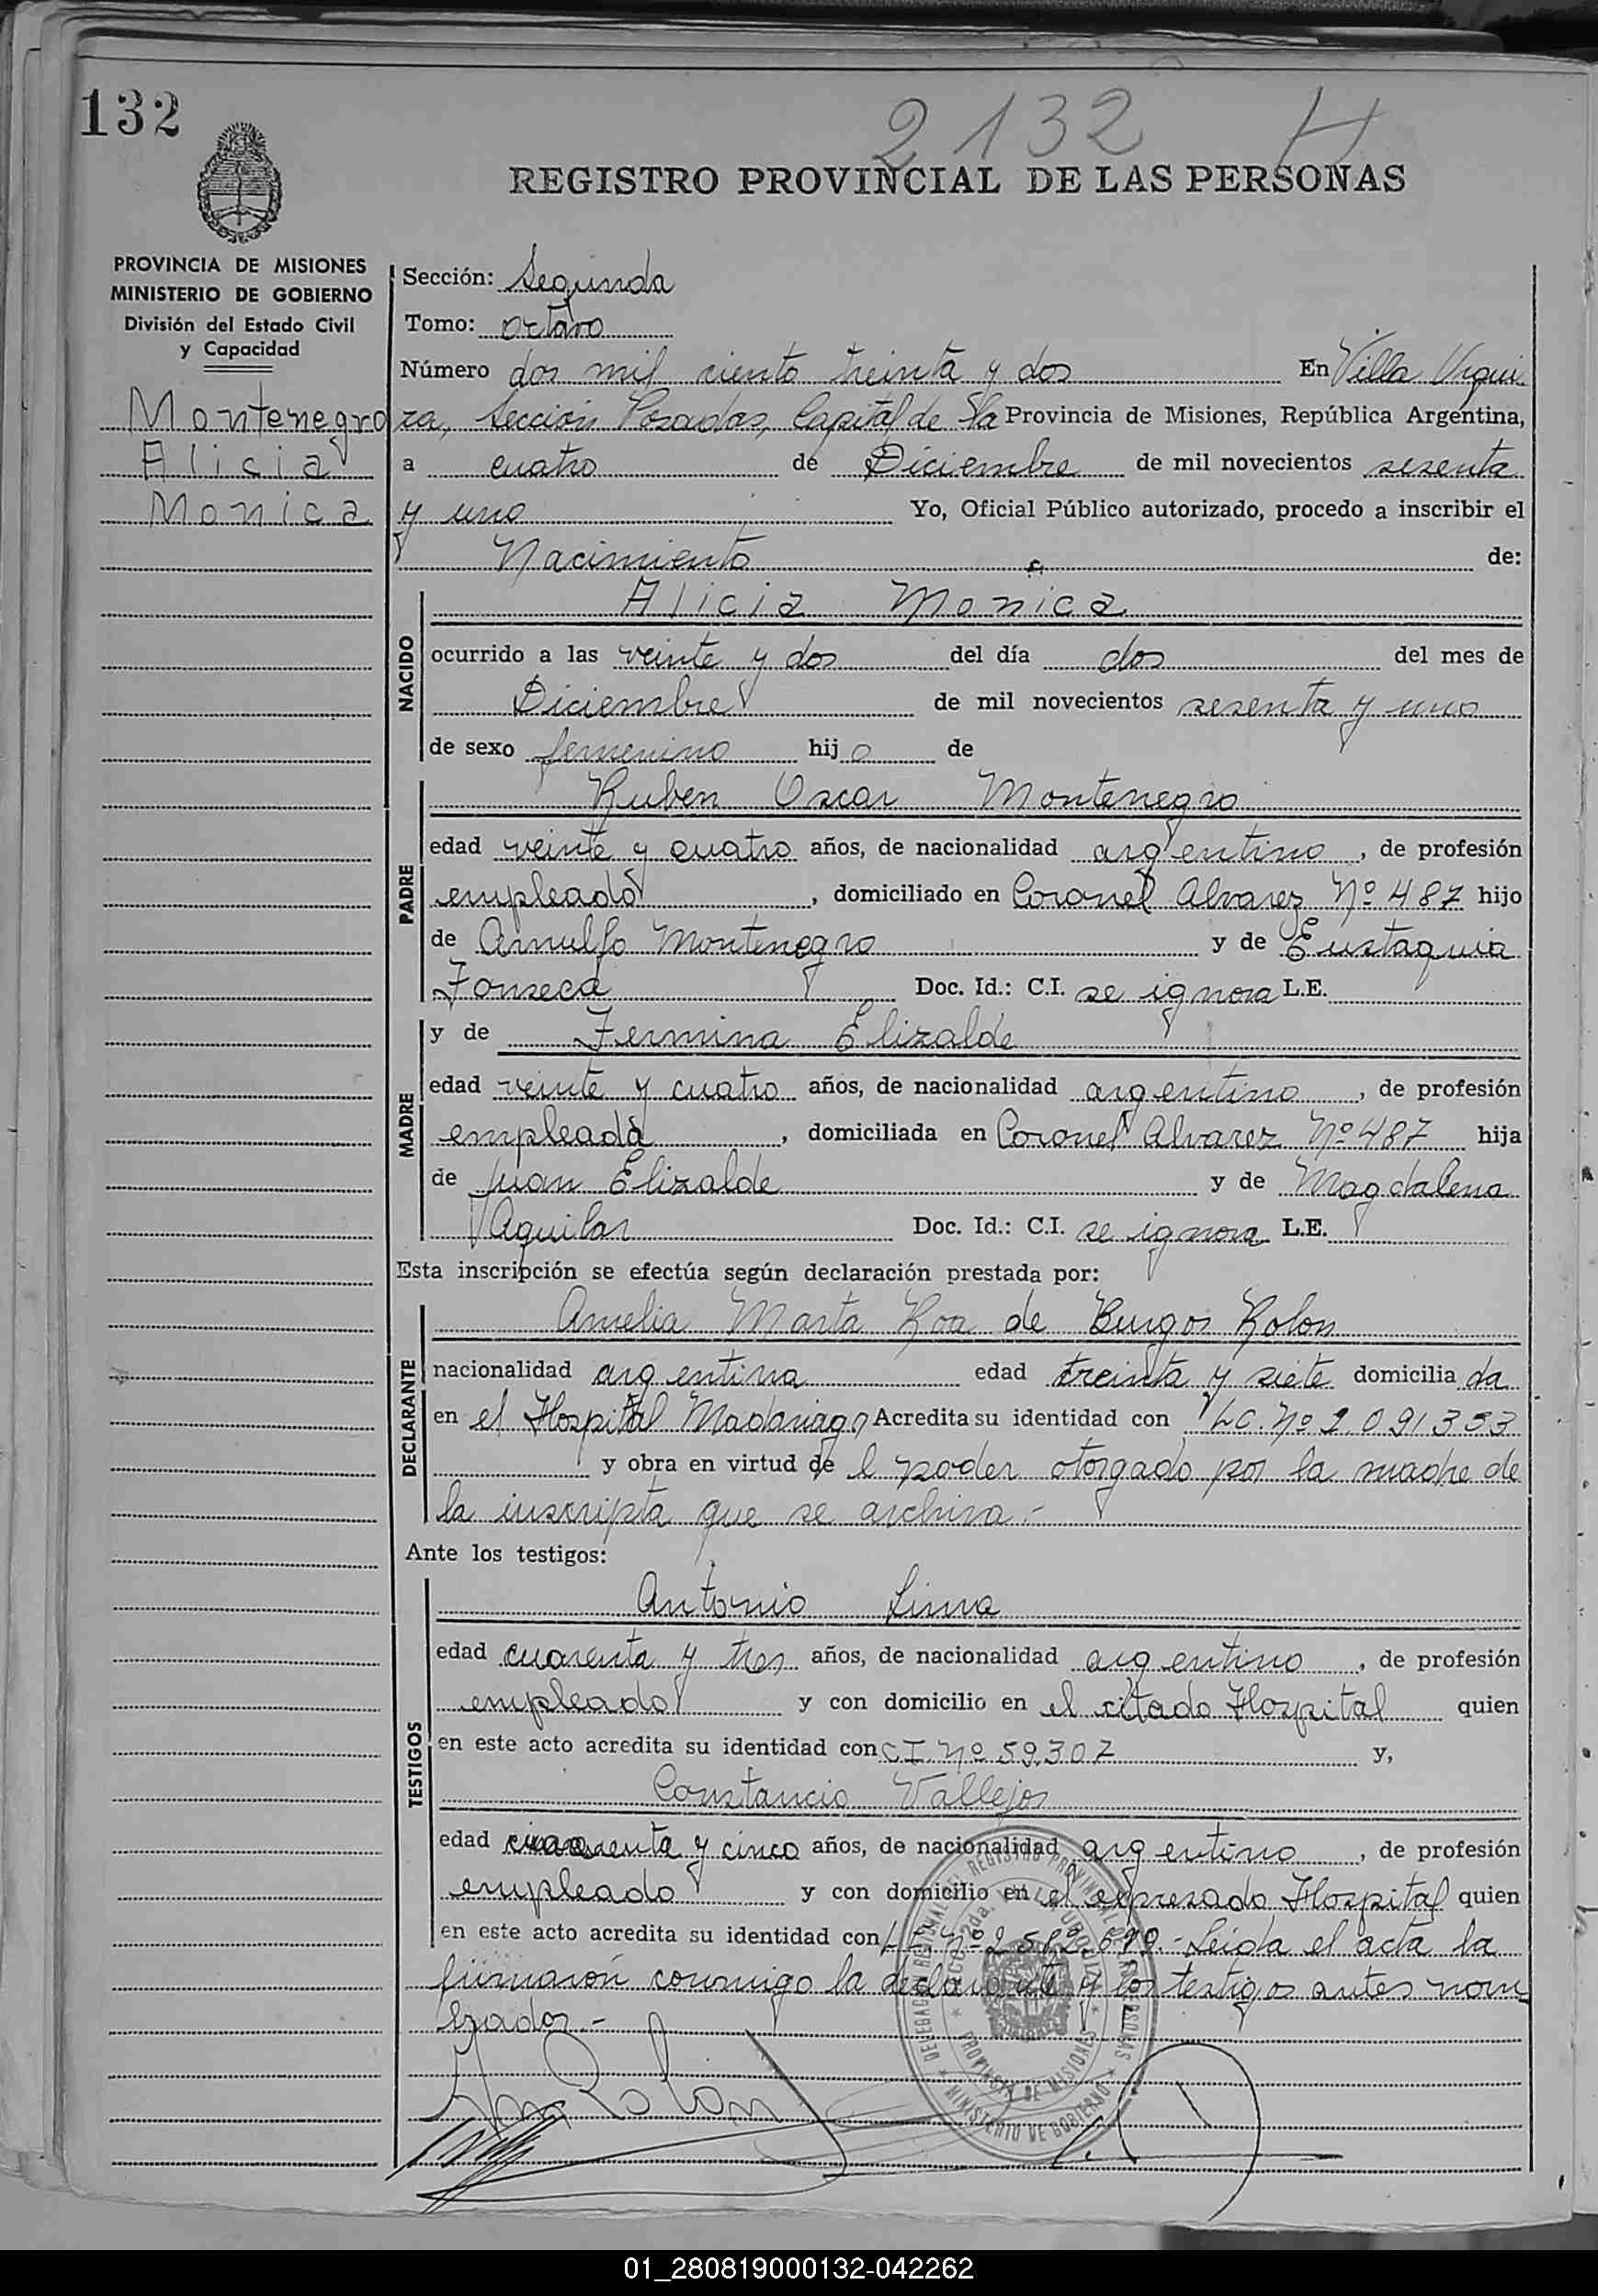 132
2132 H
REGISTRO PROVINCIAL DE LAS PERSONAS
PROVINCIA DE MISIONES
MINISTERIO DE GOBIERNO
División del Estado Civil
y Capacidad
Montenegro
Alicia
Monica
Sección: Segunda
Tomo: octavo
Número dos mil ciento treinta y dos En Villa Urqui
za, Sección Posadas, Capital de la Provincia de Misiones, República Argentina,
a cuatro de Diciembre de mil novecientos sesenta
y uno Yo, Oficial Público autorizado, procedo a inscribir el
Nacimiento de:
NACIDO
Alicia Monica
ocurrido a las veinte y dos del día dos del mes de
Diciembre de mil novecientos sesenta y uno
de sexo femenino hij o de
PADRE
Ruben Oscar Montenegro
edad veinte y cuatro años, de nacionalidad argentino, de profesión
empleado, domiciliado en Coronel Alvarez Nº 487 hijo
de Arnulfo Montenegro y de Eustaquia
Fonseca Doc. Id.: C.I. se ignora L.E.
MADRE
y de Fermina Elizalde
edad veinte y cuatro años, de nacionalidad argentino, de profesión
empleada, domiciliada en Coronel Alvarez Nº 487 hija
de Juan Elizalde y de Magdalena
Aquilar Doc. Id.: C.I. se ignora L.E.
Esta inscripción se efectúa según declaración prestada por:
DECLARANTE
Amelia Marta Roa de Burgos Rolon
nacionalidad argentina edad treinta y siete domicilia da
en el Hospital Madariaga Acredita su identidad con LC. Nº 2.091353
y obra en virtud de l poder otorgado por la madre de
la inscripta que se archiva.-
Ante los testigos:
TESTIGOS
Antonio Lima
edad cuarenta y tres años, de nacionalidad argentino, de profesión
empleado y con domicilio en el citado Hospital quien
en este acto acredita su identidad con C.I. Nº 59.307 y,
Constancio Vallejos
edad y cinco años, de nacionalidad argentino, de profesión
empleado y con domicilio en el expresado Hospital quien
en este acto acredita su identidad con L.E. Nº - Leida el acta la
firmaron conmigo la declarante y los testigos antes nom
brados.-
01_280819000132-042262